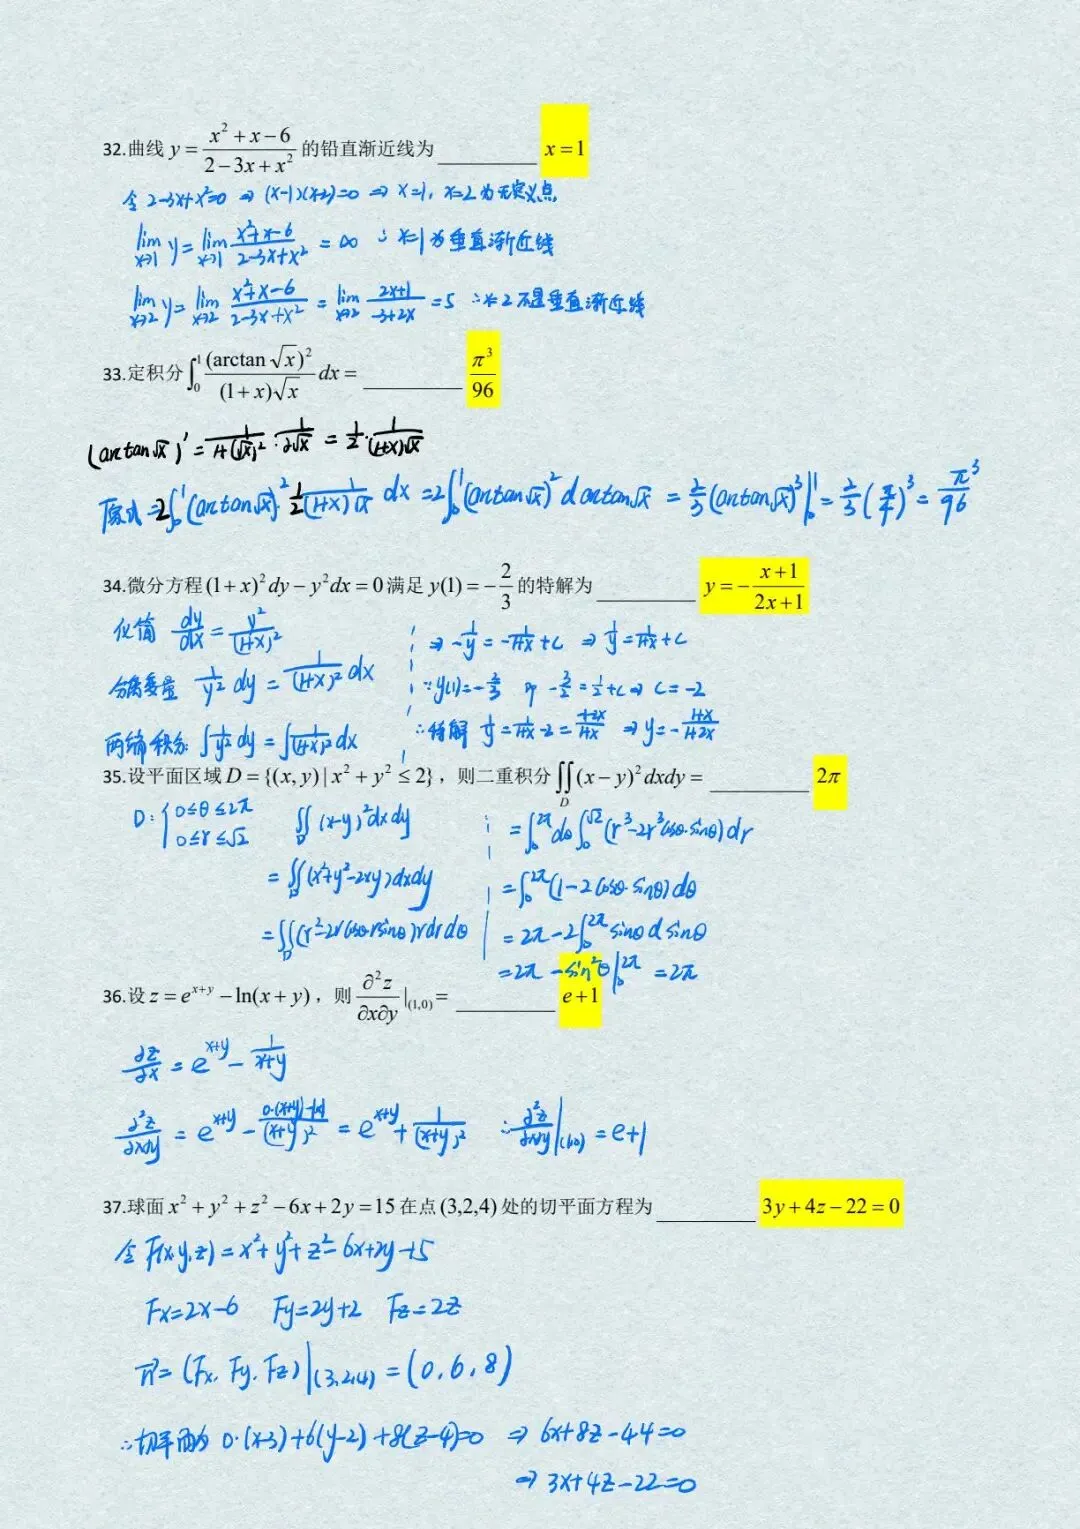 32.曲线 y = (x² + x − 6)/(2 − 3x + x²) 的铅直渐近线为 ________ x = 1
令 2-3x+x²=0 ⇒ (x-1)(x-2)=0 ⇒ x=1, x=2 为无定义点
lim x→1 y = lim x→1 (x²+x-6)/(2-3x+x²) = ∞ ∴ x=1 为垂直渐近线
lim x→2 y = lim x→2 (x²+x-6)/(2-3x+x²) = lim x→2 (2x+1)/(-3+2x) = 5 ∴ x=2 不是垂直渐近线
33.定积分 ∫₀¹ (arctan √x)²/((1+x)√x) dx = ________ π³/96
(arctan√x)' = 1/(1+(√x)²) · 1/(2√x) = 1/2 · 1/((1+x)√x)
原式 = 2∫₀¹ (arctan√x)² · 1/2 · 1/((1+x)√x) dx = 2∫₀¹ (arctan√x)² d arctan√x = 2/3 (arctan√x)³ |₀¹ = 2/3 (π/4)³ = π³/96
34.微分方程 (1+x)² dy − y² dx = 0 满足 y(1) = −2/3 的特解为 ________ y = −(x+1)/(2x+1)
化简 dy/dx = y²/(1+x)²
分离变量 1/y² dy = 1/(1+x)² dx
两端积分: ∫ 1/y² dy = ∫ 1/(1+x)² dx
⇒ -1/y = -1/(1+x) + C ⇒ 1/y = 1/(1+x) + C
∵ y(1) = -2/3 即 -3/2 = 1/2 + C ⇒ C = -2
∴ 特解 1/y = 1/(1+x) - 2 = -(1+2x)/(1+x) ⇒ y = -(1+x)/(1+2x)
35.设平面区域 D = {(x, y) | x² + y² ≤ 2}，则二重积分 ∬_D (x − y)² dxdy = ________ 2π
D: { 0≤θ≤2π
0≤r≤√2
∬_D (x-y)² dxdy
= ∬_D (x²+y²-2xy) dxdy
= ∬_D (r²-2rcosθ·rsinθ) rdrdθ
= ∫₀^2π dθ ∫₀^√2 (r³-2r³cosθ·sinθ) dr
= ∫₀^2π (1-2cosθ·sinθ) dθ
= 2π - 2∫₀^2π sinθ d sinθ
= 2π - sin²θ |₀^2π = 2π
36.设 z = e^(x+y) − ln(x + y)，则 ∂²z/∂x∂y |(1,0) = ________ e + 1
∂z/∂x = e^(x+y) - 1/(x+y)
∂²z/∂x∂y = e^(x+y) - (0·(x+y)-1·1)/(x+y)² = e^(x+y) + 1/(x+y)² ∴ ∂²z/∂x∂y |(1,0) = e+1
37.球面 x² + y² + z² − 6x + 2y = 15 在点 (3,2,4) 处的切平面方程为 ________ 3y + 4z − 22 = 0
令 F(x,y,z) = x²+y²+z²-6x+2y-15
Fx=2x-6 Fy=2y+2 Fz=2z
n⃗ = (Fx, Fy, Fz) |(3,2,4) = (0, 6, 8)
∴ 切平面为 0·(x-3)+6(y-2)+8(z-4)=0 ⇒ 6x+8z-44=0
⇒ 3x+4z-22=0